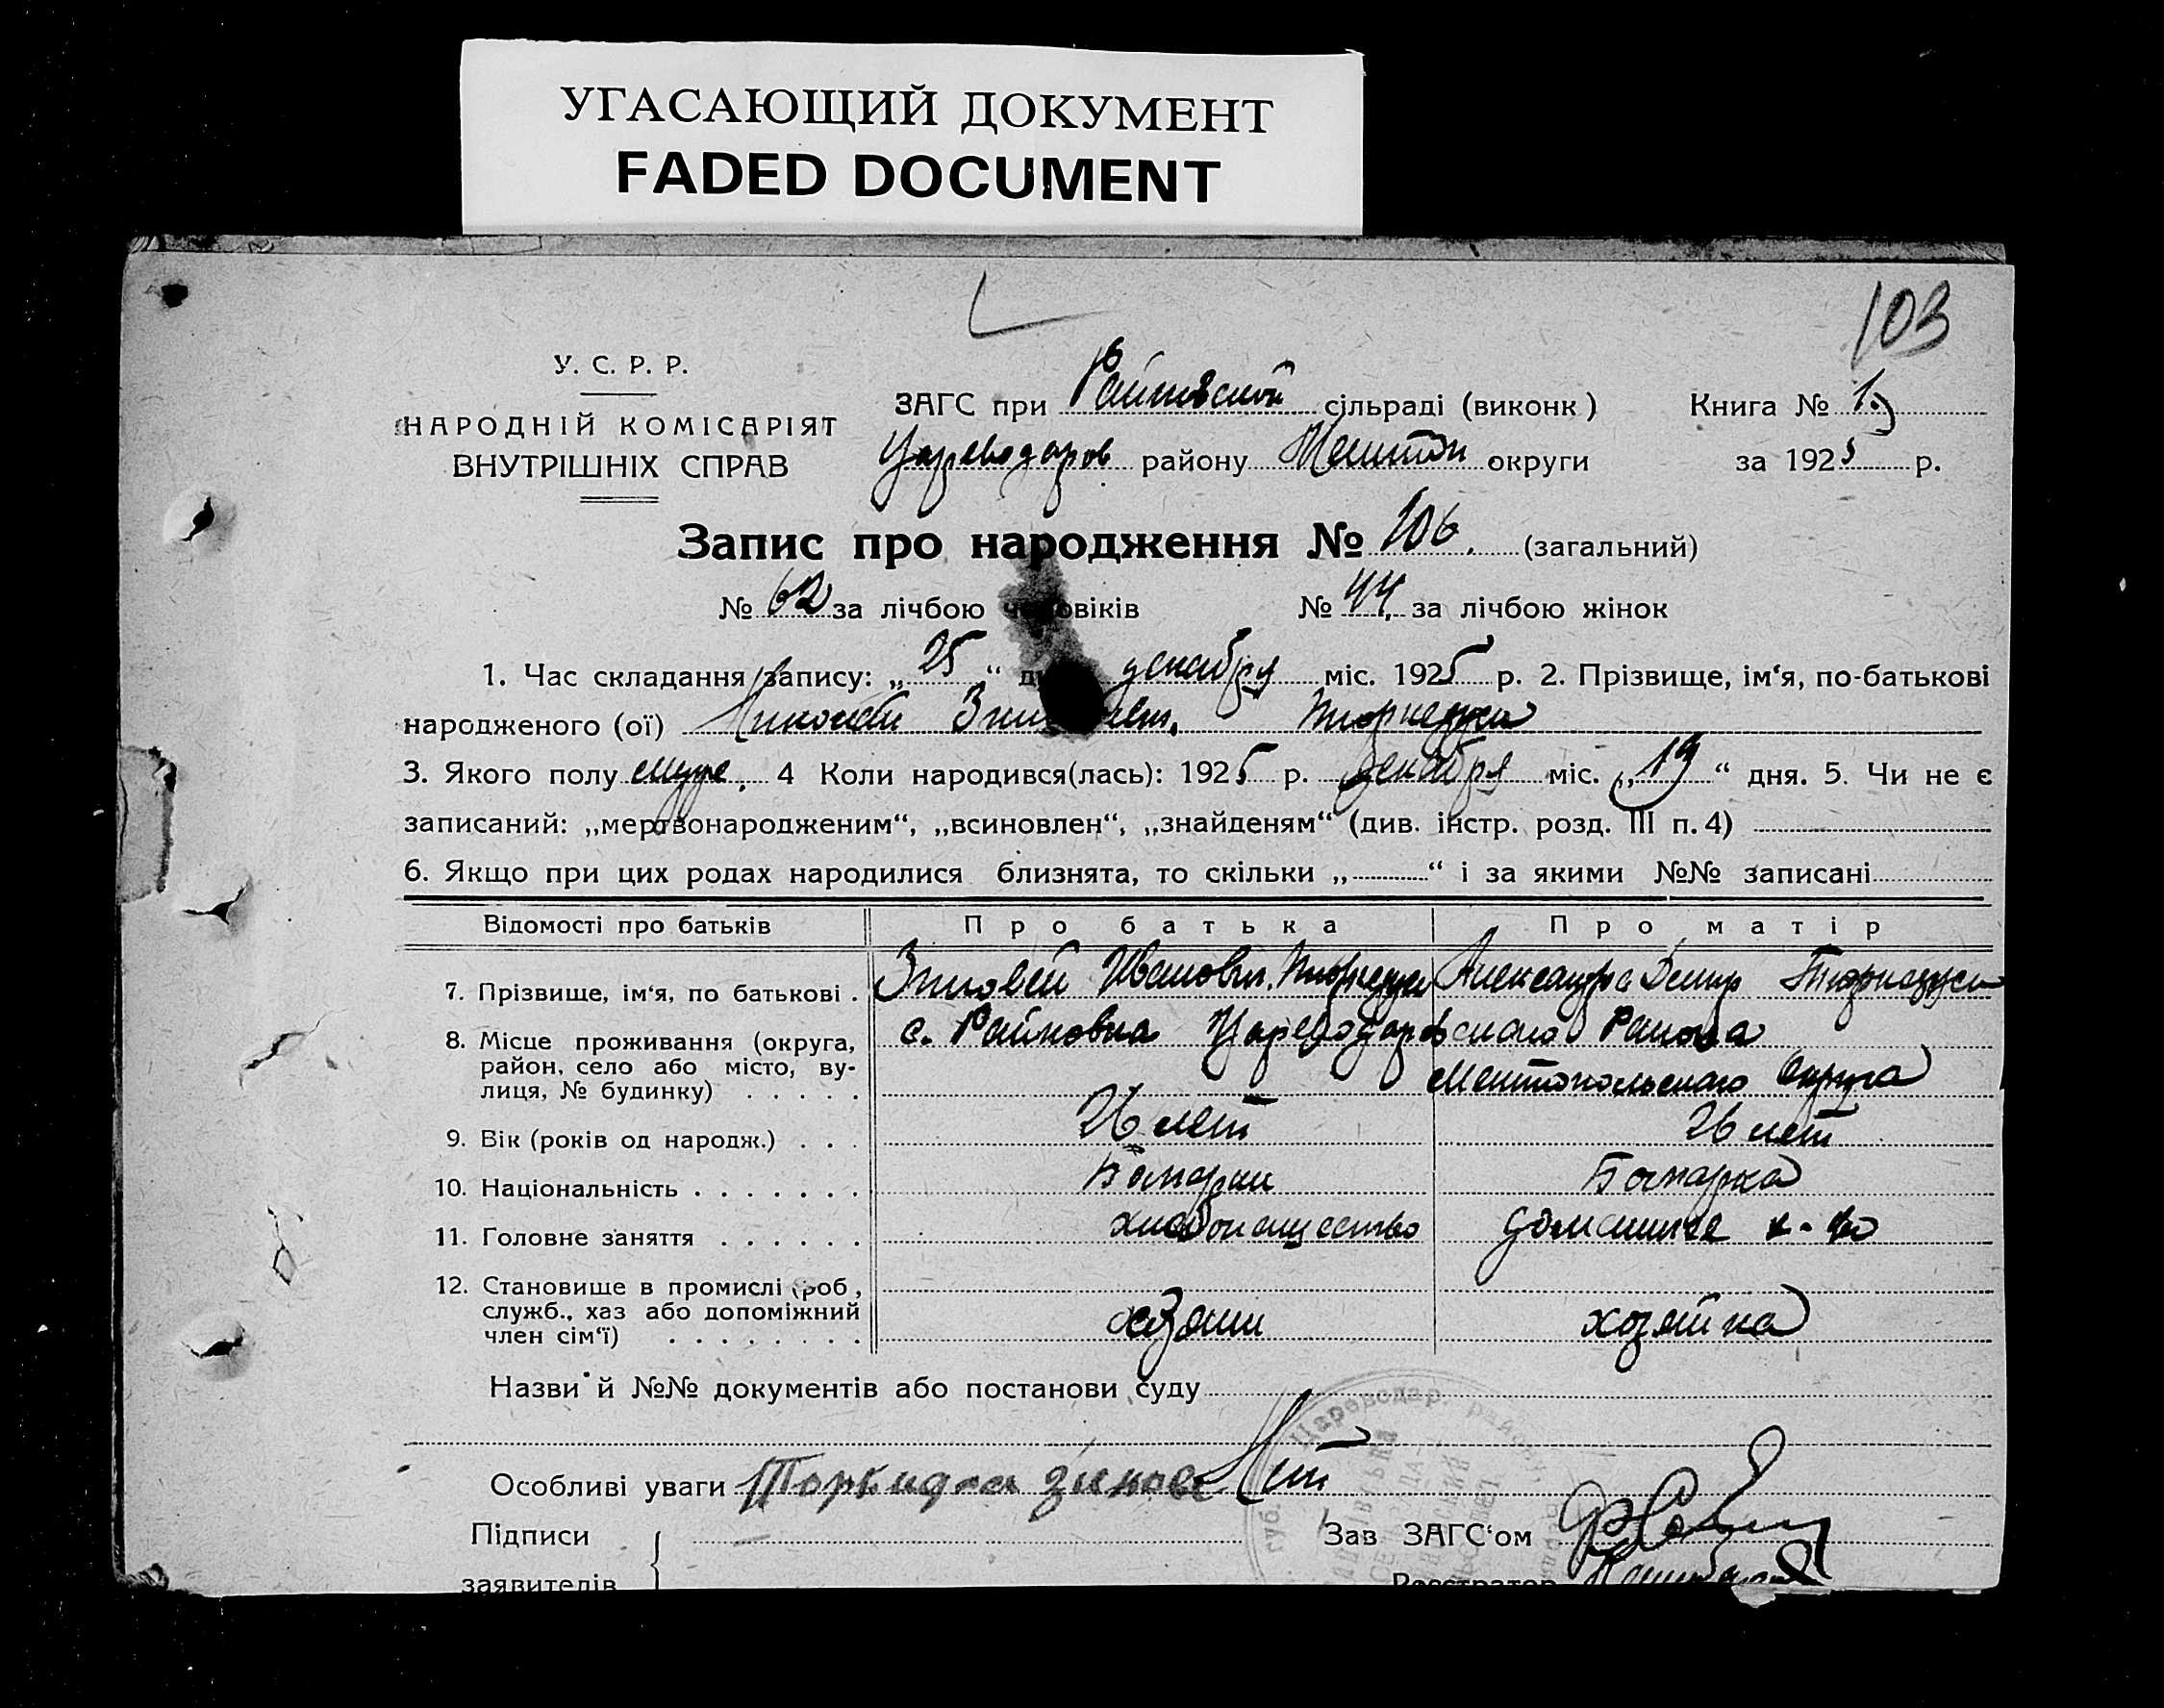 УГАСАЮЩИЙ ДОКУМЕНТ
FADED DOCUMENT
103
У. С. Р. Р.
НАРОДНІЙ КОМІСАРІЯТ
ВНУТРІШНІХ СПРАВ
ЗАГС при сільраді (виконк)
Книга № 1
Цареводаров району округи
за 1925 р.
Запис про народження № 106. (загальний)
№ 62 за лічбою чоловіків № 44 за лічбою жінок
1. Час складання запису: „25“ декабря міс. 1925 р. 2. Прізвище, ім‘я, по-батькові
народженого (ої) Николай
3. Якого полу муж. 4 Коли народився(лась): 1925 р. декабря міс. „19“ дня. 5. Чи не є
записаний: „мертвонародженим“, „всиновлен“, „знайденям“ (див. інстр. розд. III п. 4)
6. Якщо при цих родах народилися близнята, то скільки „ “ і за якими №№ записані
Відомості про батьків Про батька Про матір
7. Прізвище, ім‘я, по батькові . Зиновей Иванович Александра
8. Місце проживання (округа, район, село або місто, вулиця, № будинку) с. Райновка Цареводаровского Района
Мелитопольского Округа
9. Вік (років од народж.) . . . 26 лет 26 лет
10. Національність . . . . . . . Болгарин Болгарка
11. Головне заняття . . . . . . хлебопашество домашнее х-во
12. Становище в промислі (роб, служб., хаз або допоміжний член сім‘ї) хозяин хозяйка
Назви й №№ документів або постанови суду
Нет
Особливі уваги
Підписи
заявителів
Зав ЗАГС‘ом
Реєстратор